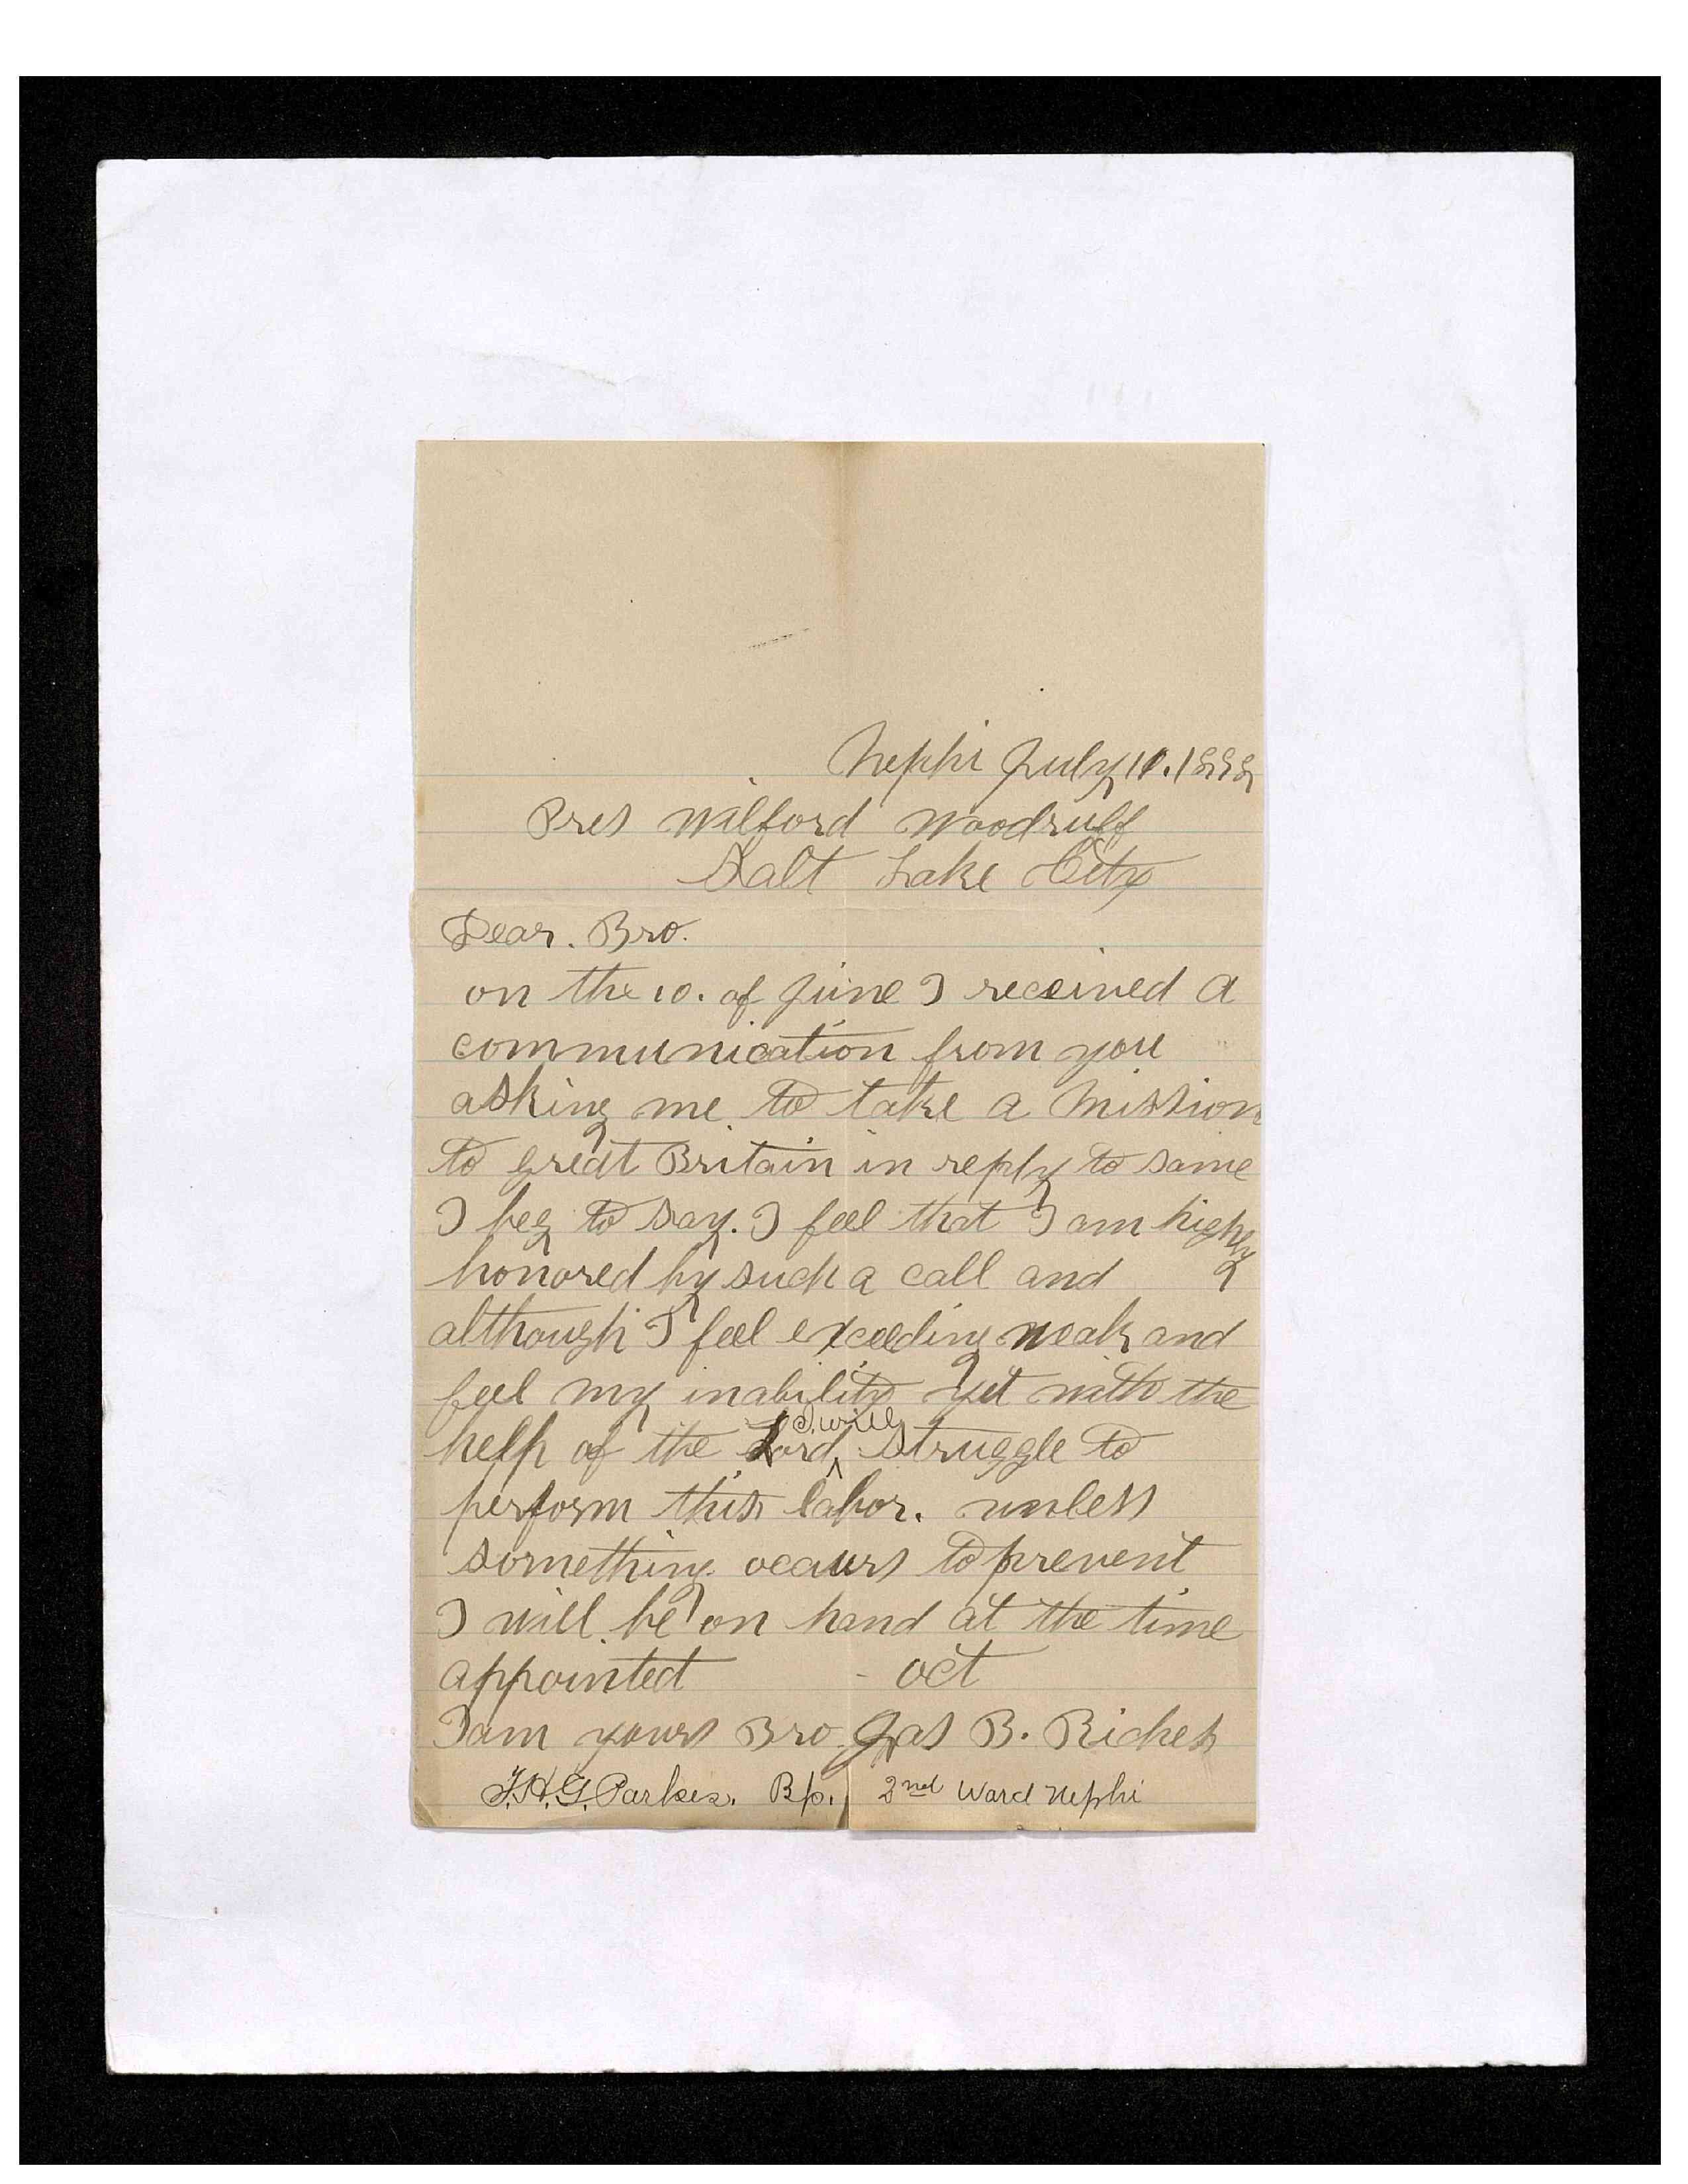 Nephi July 10. 1898
Pres Wilford Woodruff
Salt Lake City
Dear. Bro.
on the 10. of June I received a
communication from you
asking me to take a Mission
to great Britain in reply to same
I beg to say. I feel that I am highly
honored by such a call and
although I feel exceeding weak and
feel my inability yet with the
help of the Lord ^I will^ struggle to
perform this labor. unless
something occurs to prevent
I will be on hand at the time
appointed - oct
I am yours Bro. Jas B. Riches
T.H.G. Parkes. Bp. 2nd Ward Nephi